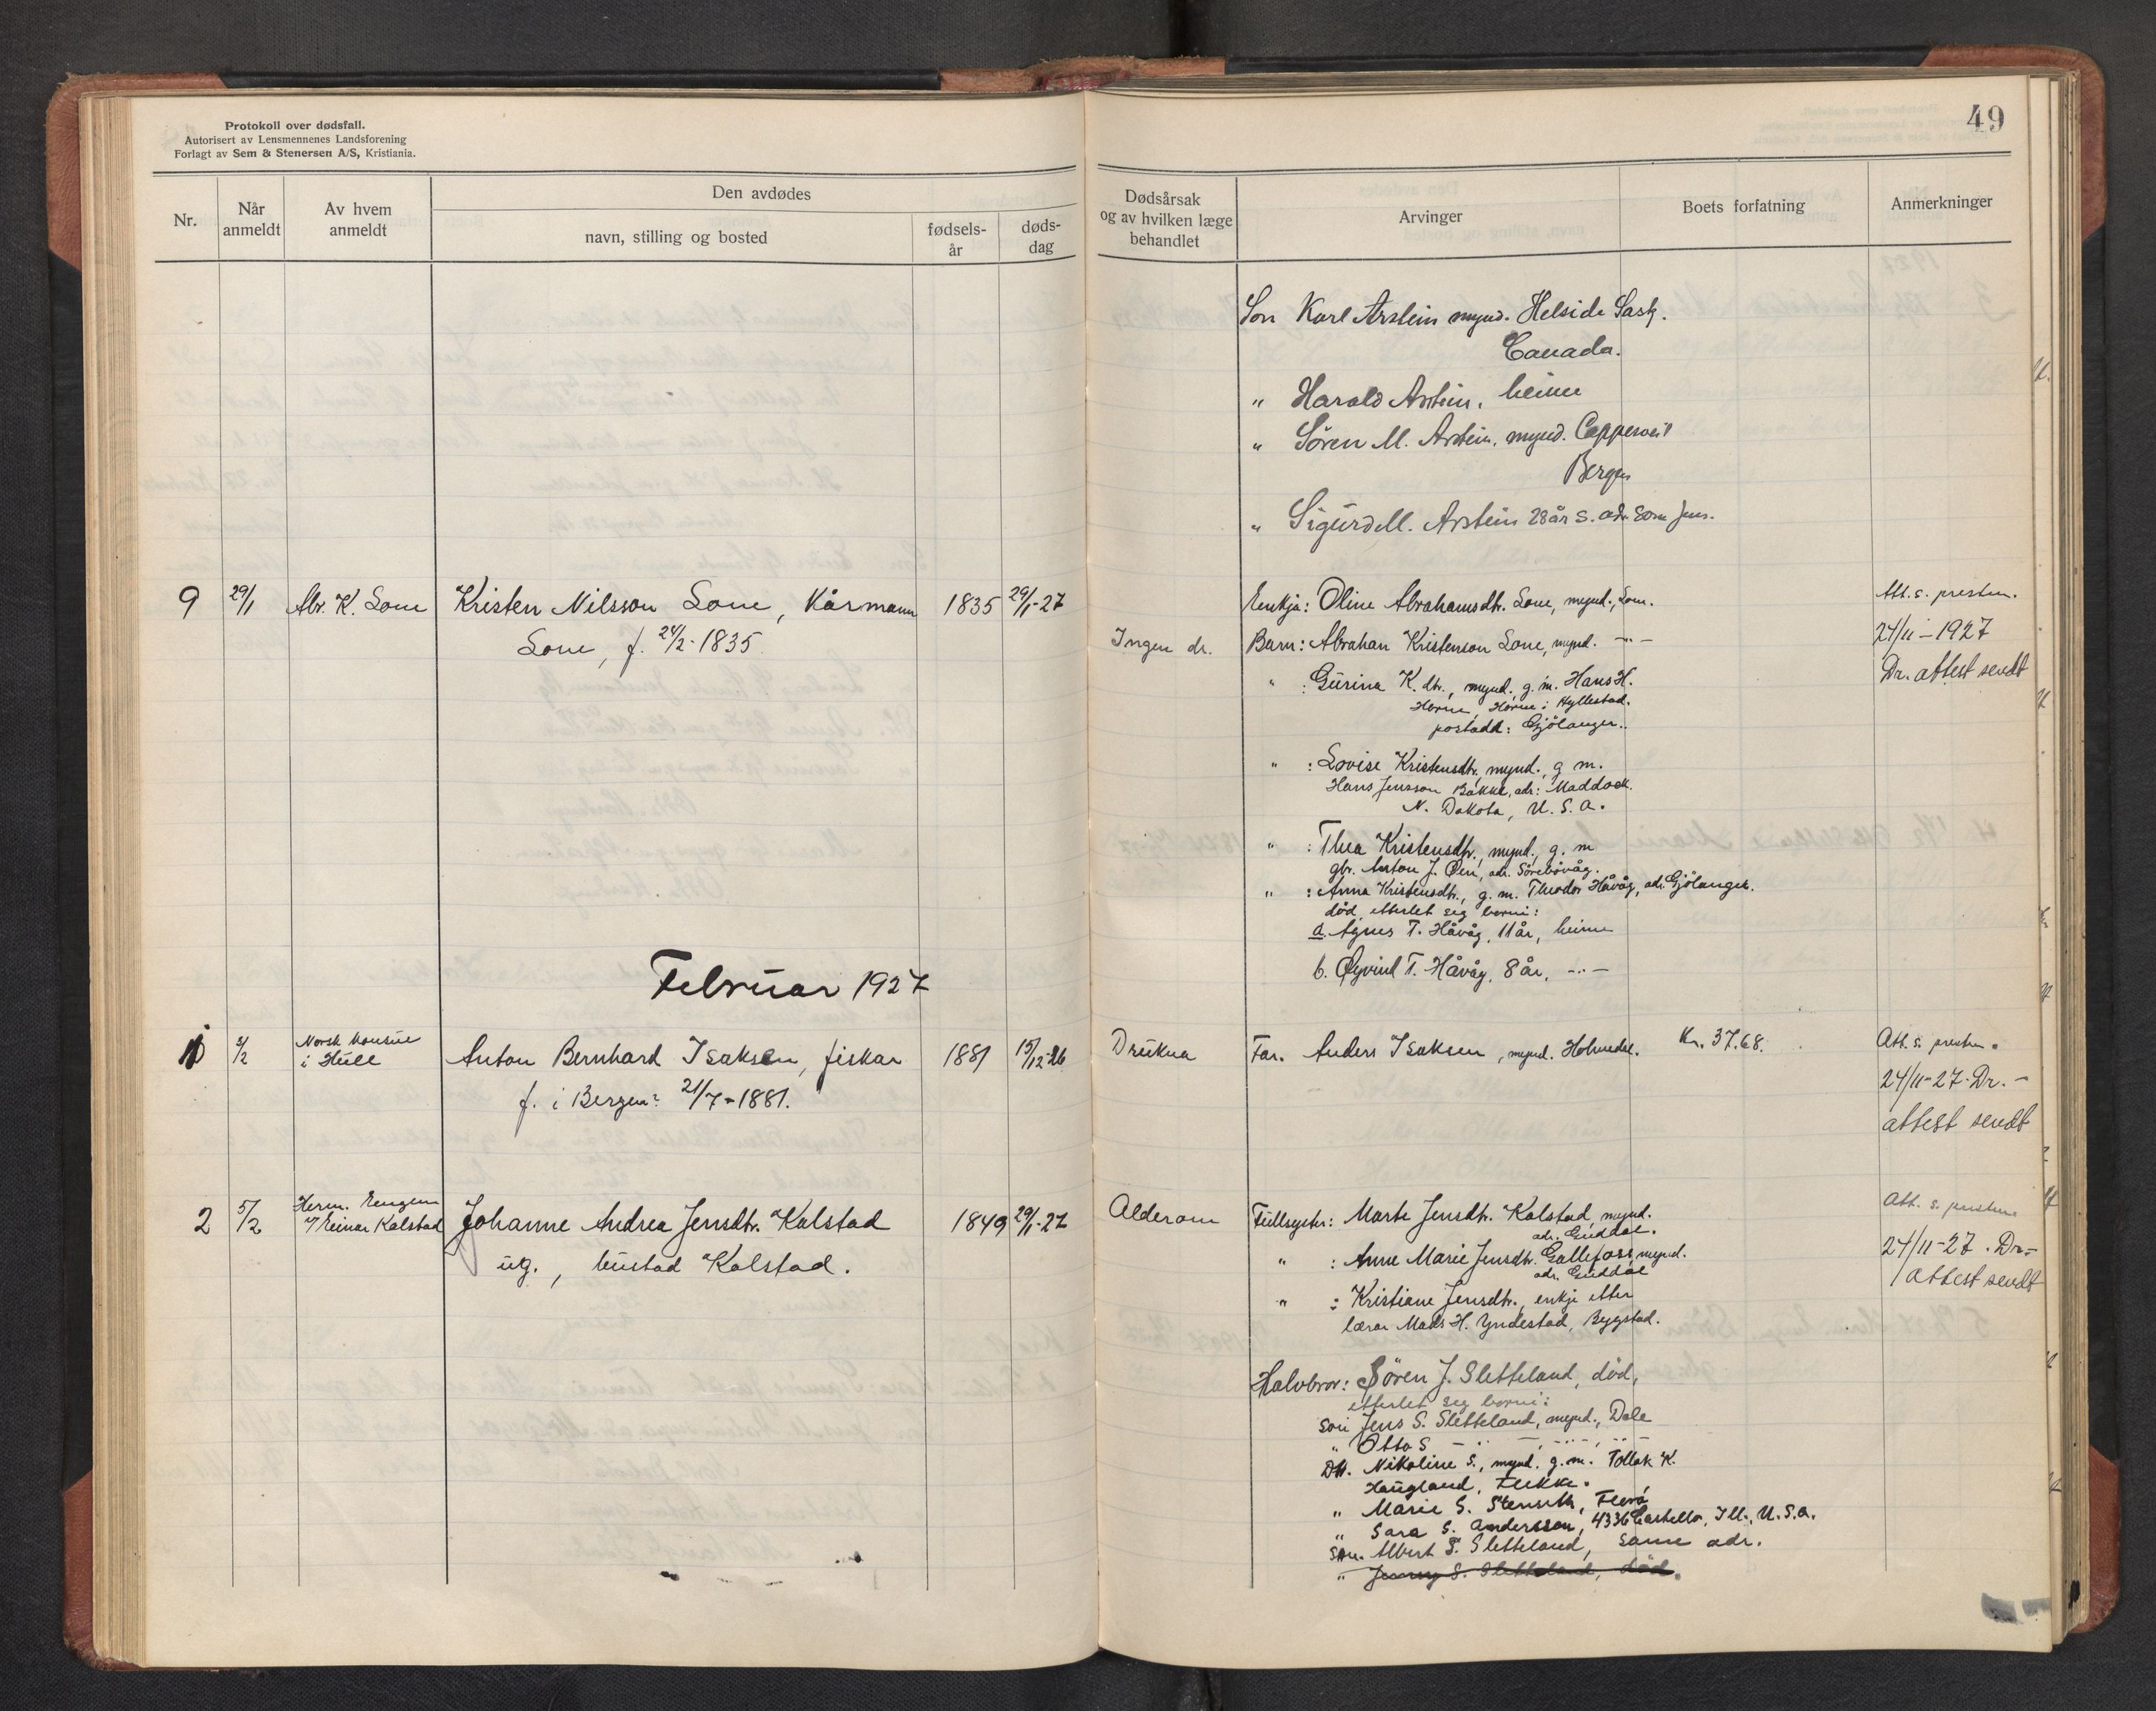 Protokoll over dødsfall.
Autorisert av Lensmennenes Landsforening
Forlagt av Sem & Stenersen A/S, Kristiania.
49
Nr.
Når anmeldt
Av hvem anmeldt
Den avdødes
navn, stilling og bosted
fødsels-år
døds-dag
Dødsårsak og av hvilken læge behandlet
Arvinger
Boets forfatning
Anmerkninger
Son Karl Arstein mynd. Helside Sask.
Canada.
" Harald Arstein, heime
" Sören M. Arstein, mynd.
Bergen
" Sigurd M. Arstein 28 år s. adr. som Jens.
9 29/1 Abr. K. Sone Kristen Nilsson Sone, Kårmann 1835 29/1-27
Sone, f. 24/2-1835
Ingen dr.
Enkja: Oline Abrahamsdtr. Sone, mynd., Son.
Barn: Abrahan Kristenson Sone, mynd. -"-
" : Gurina K.dtr., mynd., g.m. Hans H.
Horne, Horne i Hyllestad.
postadr: Gjölanger.
" : Lovise Kristensdtr, mynd., g m.
Hans Jensson Bakke, adr: Maddock.
N. Dakota, U. S. A.
" : Thea Kristensdtr., mynd., g. m
gbr. Anton J. Öen, adr. Sörebövåg.
" : Anna Kristensdtr., g. m. Theodor Håvåg, adr. Gjölanger.
död, etterlet seg borni:
a. Agnes T. Håvåg, 11 år, heime
b. Øyvind T. Håvåg, 8 år, -"-
Att. s. presten.
24/11-1927
Dr. attest sendt
Februar 1927
1 3/2 Norsk konsul
i Hull
Anton Bernhard Isaksen, fiskar 1881 15/12-26
f. i Bergen? 21/7-1881.
Drukna
Far. Anders Isaksen, mynd. Holmedal. Kr. 37.68.
Att. s. presten.
24/11-27. Dr. -
attest sendt
2 5/2 Herm. Eugen
v/ Einar Kalstad
Johanne Andrea Jensdtr. Kalstad 1849 29/1-27
ug., bustad Kalstad.
Alderom
Fullsyster: Marte Jensdtr. Kalstad, mynd.
adr. Guddal.
" : Anne Marie Jensdtr. Gallefoss, mynd.
adr. Guddal
" : Kristiane Jensdtr., enkje etter
lærar Mads H. Yndestad, Bygstad.
Halvbror: Sören J. Sletteland, död,
etterlet seg borni:
son Jens S. Sletteland, mynd., Dale
" Otto S -"- , -"- , -"-
Dtr. Nikoline S., mynd. g.m. Tollak K.
Haugland, Flekke.
" Marie S. Stenseth, Florö
" Sara S. Anderssen, 4336 Cortello, Ill., U.S.A.
son. Albert S. Sletteland, same adr.
" Jenny S. Sletteland, död.
Att. s. presten
24/11-27. Dr.-
attest sendt